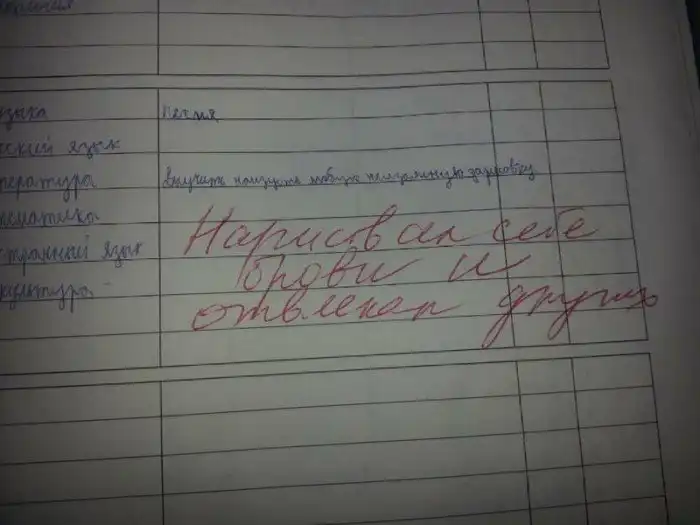 узыка песня
сский язык
тература выучить наизусть любую
тематика
странный язык
культура
Нарисовал себе
брови и
отвлекал других